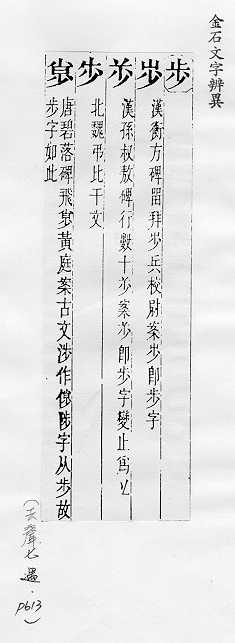 金石文字辨異
步
漢衛方碑畱拜步兵校尉案步卽步字
漢孫叔敖碑行數十步案步卽步字變止爲山
步
北魏弔比干文
唐碧落碑飛㠯黃庭案古文涉作
陟字从步故
步字如此
(去聲七遇．
P613)